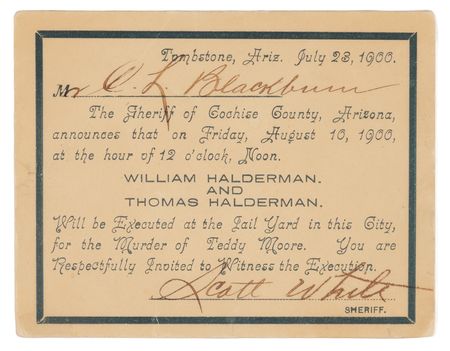 Tombstone, Ariz. July 23, 1900.
Mr C. L. Blackburn
The Sheriff of Cochise County, Arizona,
announces that on Friday, August 10, 1900,
at the hour of 12 o'clock, Noon.
WILLIAM HALDERMAN.
AND
THOMAS HALDERMAN.
Will be Executed at the Jail Yard in this City,
for the Murder of Teddy Moore. You are
Respectfully Invited to Witness the Execution.
Scott White
SHERIFF.